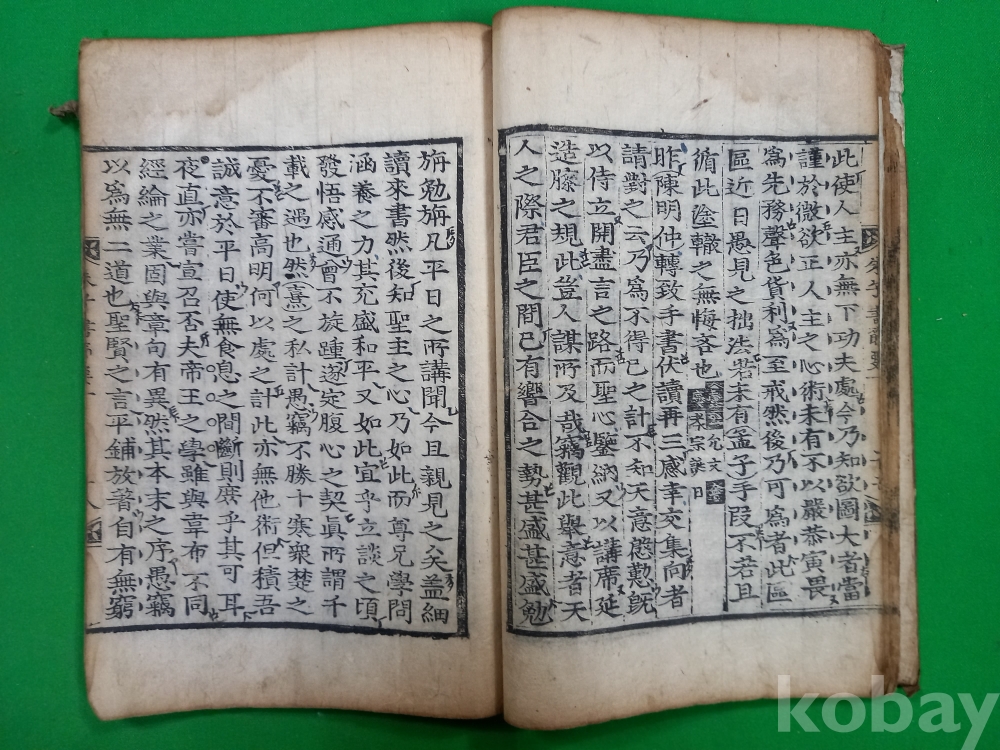 此使人主亦無下功夫處今乃知欲圖大者當
謹於微欲正人主之心術未有不以嚴恭寅畏
爲先務聲色貨利爲至戒然後乃可爲者此區
區近日愚見之拙法若未有孟子手段不若且
循此塗轍之無悔吝也
昨陳明仲轉致手書伏讀再三感幸交集向者
請對之云乃爲不得已之計不知天意慇懃旣
以侍立開盡言之路而聖心鑒納又以講席延
造膝之規此豈人謀所及哉竊觀此擧意者天
人之際君臣之間已有響合之勢甚盛甚盛勉
旃勉旃凡平日之所講聞今且親見之矣蓋細
讀來書然後知聖主之心乃如此而尊兄學問
涵養之力其充盛和平又如此宜乎立談之頃
發悟感通曾不旋踵遂定腹心之契眞所謂千
載之遇也然熹之私計愚竊不勝十寒衆楚之
憂不審高明何以處之計此亦無他術但積吾
誠意於平日使無食息之間斷則庶乎其可耳
夜直亦嘗宣召否夫帝王之學雖與韋布不同
經綸之業固與章句有異然其本末之序愚竊
以爲無二道也聖賢之言平鋪放著自有無窮
kobay